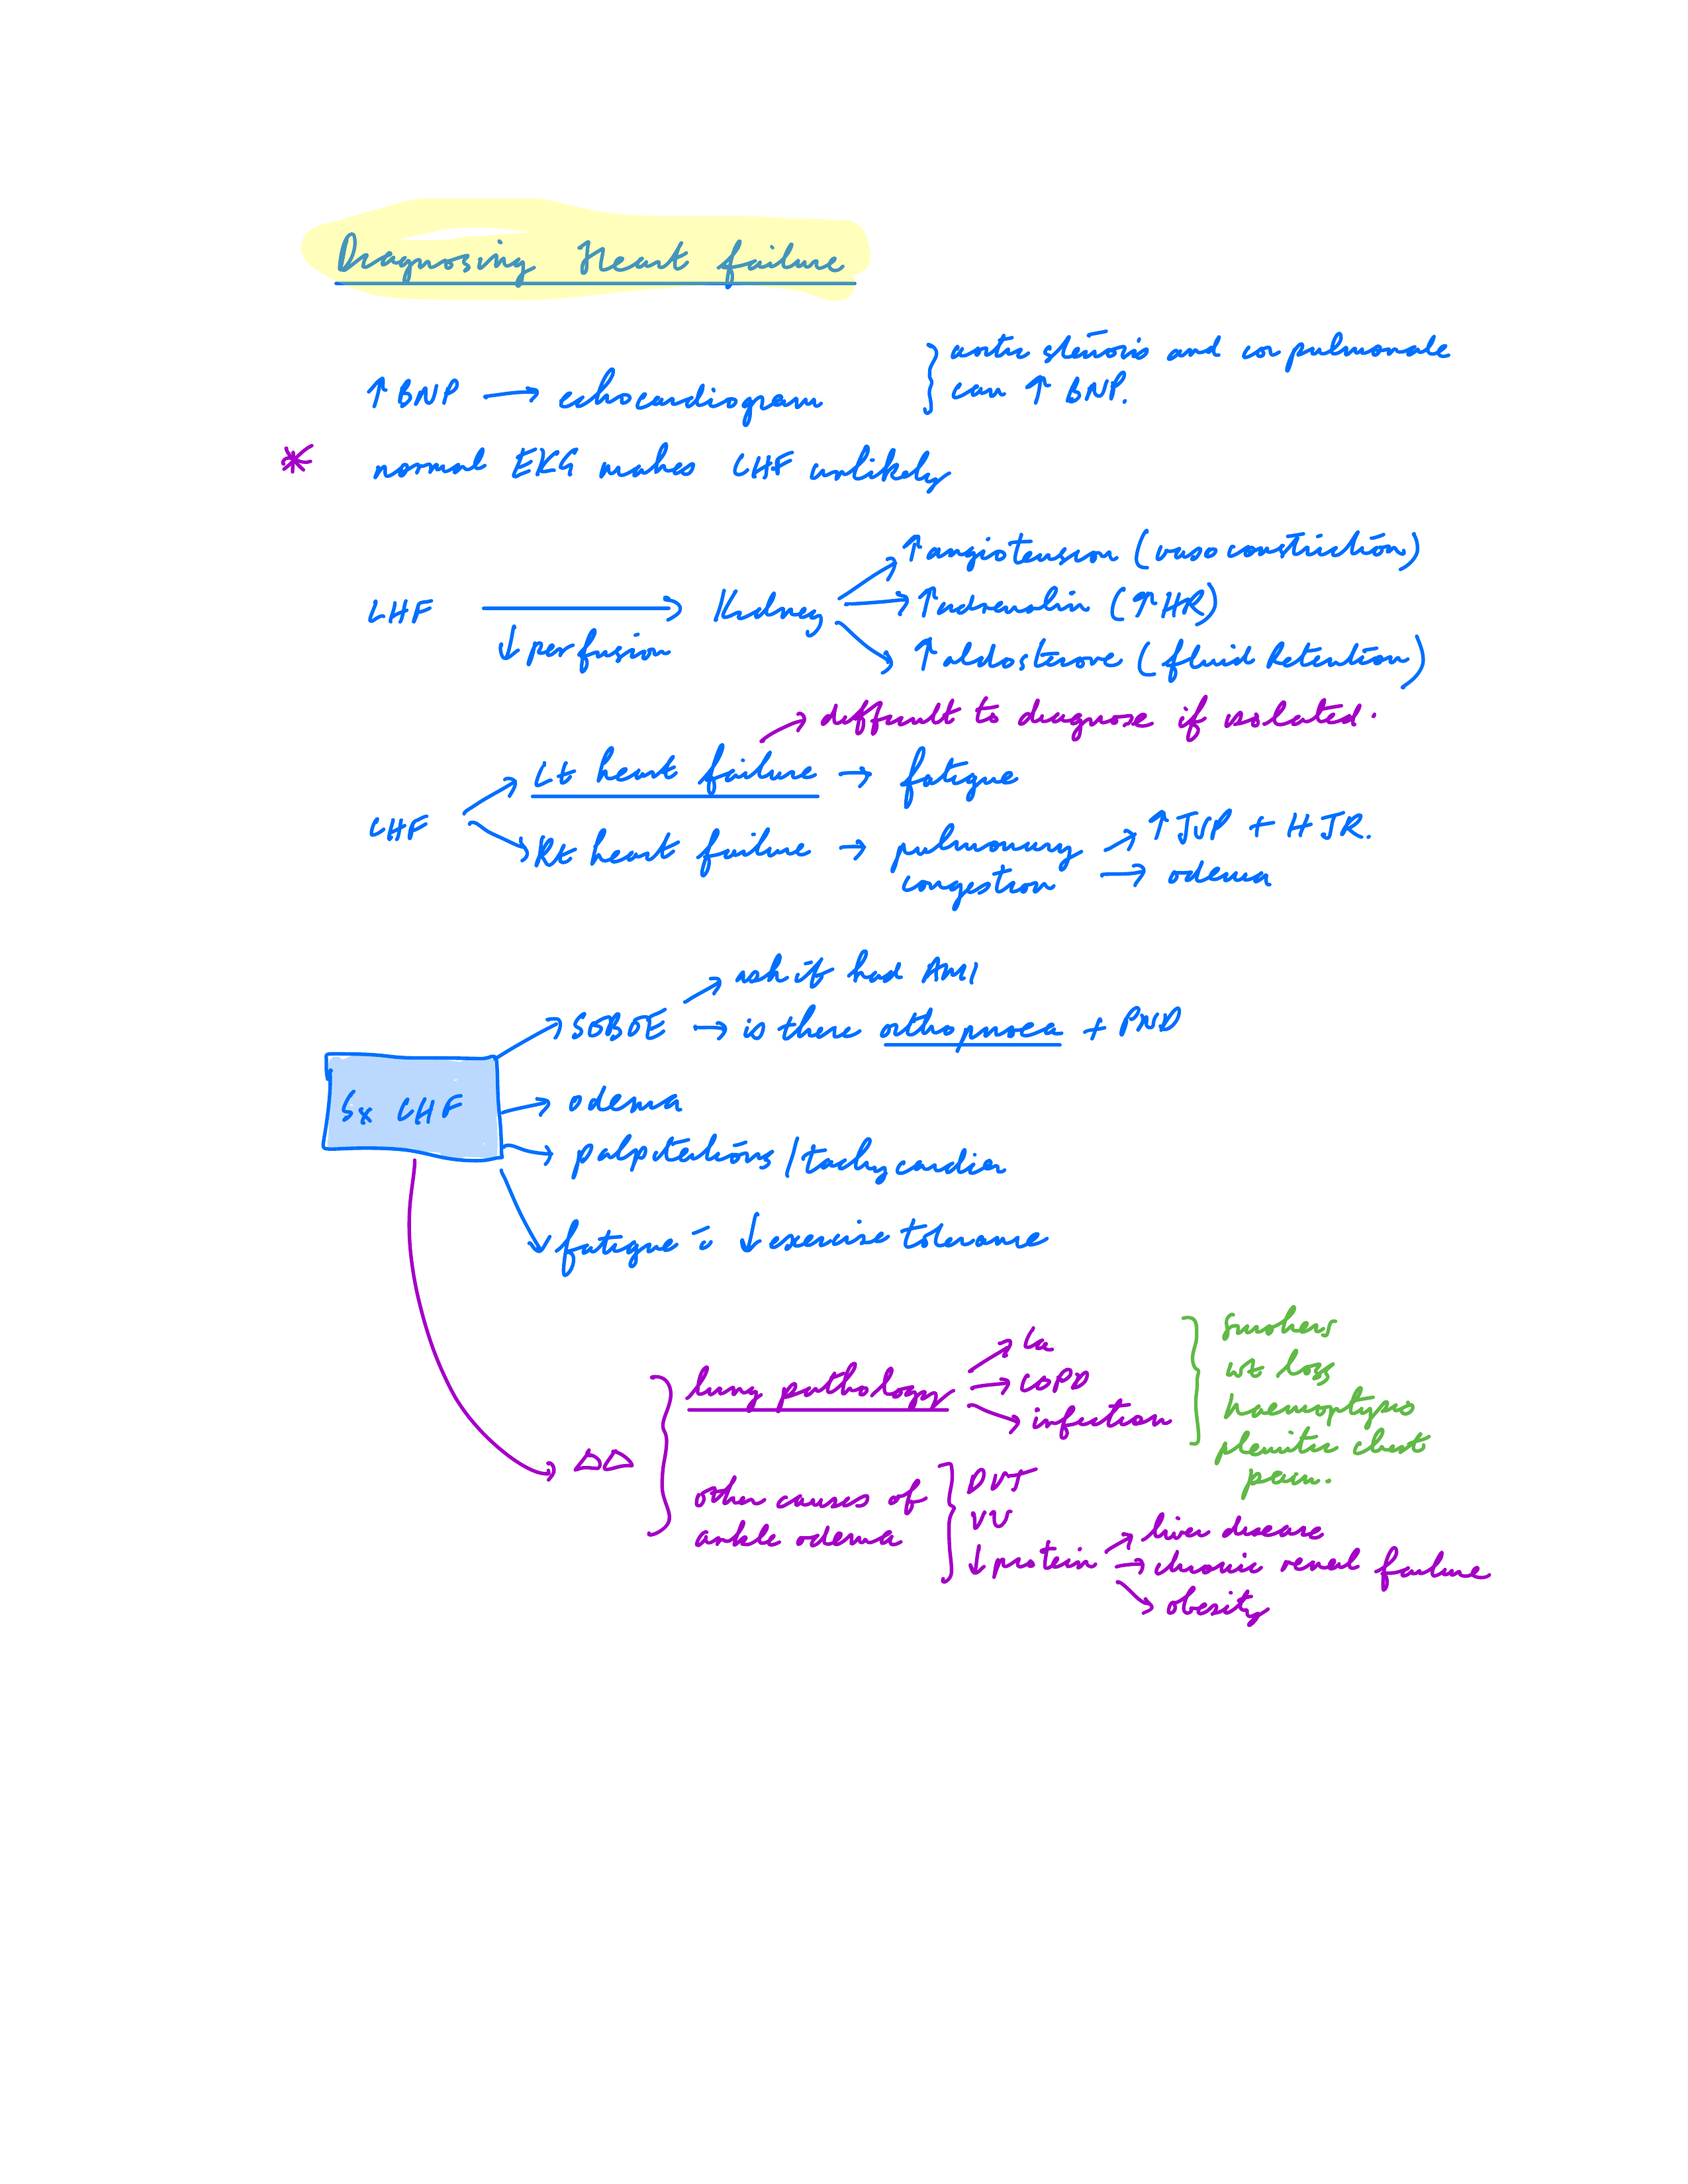 Diagnosing Heart failure
↑ BNP → echocardiogram } aortic stenosis and cor pulmonale
can ↑ BNP.
* normal EKG makes CHF unlikely
CHF → Kidney
↓ perfusion
↑ angiotension (vasoconstriction)
↑ adrenalin (↑ HR)
↑ aldosterone (fluid Retention)
→ difficult to diagnose if isolated.
CHF
Lt heart failure → fatigue
Rt heart failure → pulmonary congestion
→ ↑ JVP + HJR.
→ odema
Sx CHF
→ SOBOE
→ ask if had AMI
→ is there orthopnoea + PND
→ odema
→ palpitations / tachycardia
→ fatigue c̄ ↓ exercise tolerance
→ ΔΔ
lung pathology
→ Ca
→ COPD
→ infection
Smokers
wt loss
haemoptysis
pleuritic chest
pain.
other causes of
ankle odema
DVT
VV
↓ protein
→ liver disease
→ chronic renal failure
→ obesity